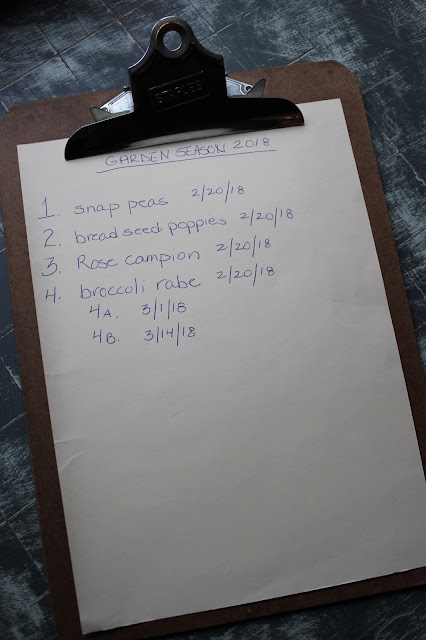 STAPLES
GARDEN SEASON 2018
1. snap peas 2/20/18
2. breadseed poppies 2/20/18
3. Rose campion 2/20/18
4. broccoli rabe 2/20/18
4A. 3/1/18
4B. 3/14/18